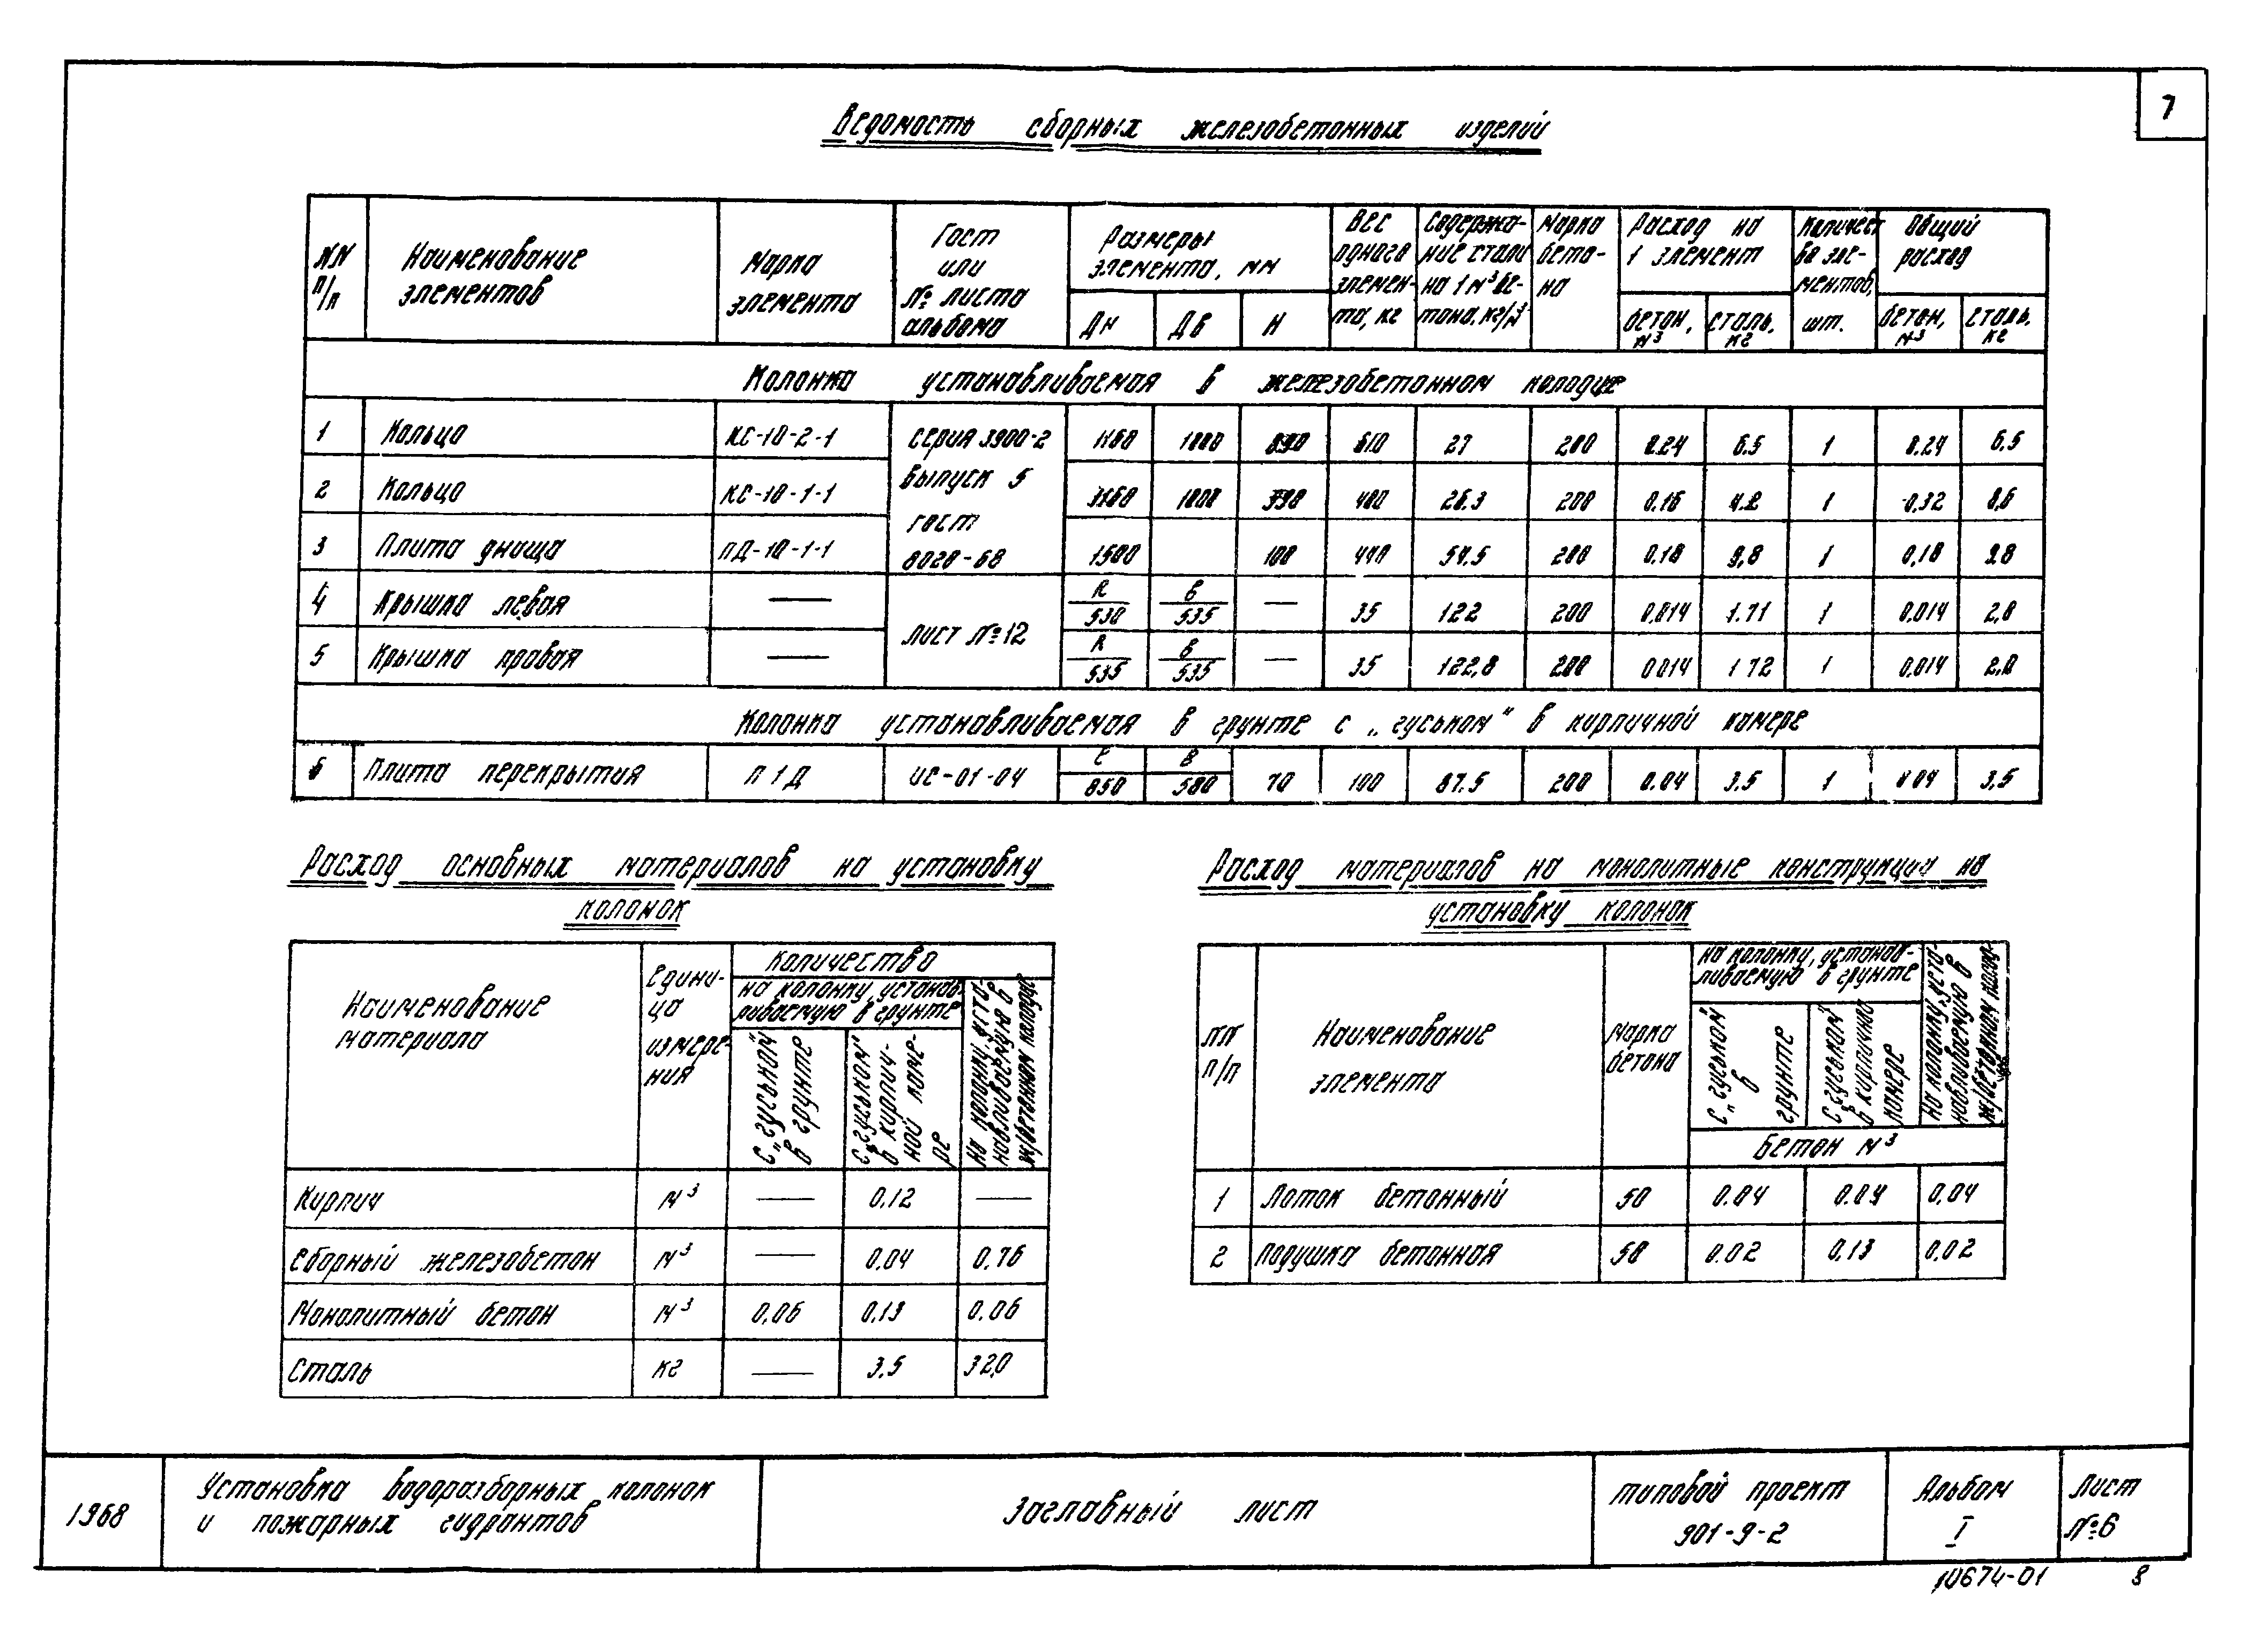 7
Ведомость сборных железобетонных изделий
NN п/п | Наименование элементов | Марка элемента | Гост или № листа альбома | Размеры элемента, мм | Вес одного элемента, кг | Содержание стали на 1 м³ бетона, кг/м³ | Марка бетона | Расход на 1 элемент | Количество элементов, шт. | Общий расход
Дн | Дв | Н | бетон, м³ | сталь, кг | бетон, м³ | сталь, кг
Колонка устанавливаемая в железобетонном колодце
1 | Кольцо | КС-10-2-1 | серия 3900-2 | 1160 | 1000 | 890 | 610 | 27 | 200 | 0.24 | 6.5 | 1 | 0.24 | 6,5
выпуск 5
2 | Кольцо | КС-10-1-1 | 1160 | 1000 | 590 | 400 | 26.3 | 200 | 0.16 | 4.2 | 1 | 0,32 | 8,6
гост
3 | Плита днища | ПД-10-1-1 | 8020-68 | 1500 | 100 | 440 | 54.5 | 200 | 0.18 | 9,8 | 1 | 0,18 | 9.8
4 | Крышка левая | — | R/530 | б/535 | — | 35 | 122 | 200 | 0,014 | 1.71 | 1 | 0.014 | 2,0
лист №12
5 | Крышка правая | — | R/535 | б/535 | — | 35 | 122,8 | 200 | 0014 | 1 72 | 1 | 0,014 | 2,0
Колонка устанавливаемая в грунте с „гуськом" в кирпичной камере
6 | Плита перекрытия | П 1 Д | ИС-01-04 | ℓ/850 | В/580 | 70 | 100 | 87.5 | 200 | 0.04 | 3.5 | 1 | 0 04 | 3,5
Расход основных материалов на установку
колонок
Наименование материала | Единица измерения | Количество
на колонку, устанавливаемую в грунте | На колонку, устанавливаемую в ж/бетонном колодце
с „гуськом" в грунте | С „гуськом" в кирпичной камере
Кирпич | м³ | — | 0.12 | —
Сборный железобетон | м³ | — | 0.04 | 0.76
Монолитный бетон | м³ | 0.06 | 0.13 | 0.06
Сталь | кг | — | 3.5 | 32,0
Расход материалов на монолитные конструкции на
установку колонок
пп п/п | Наименование элемента | Марка бетона | на колонку, устанавливаемую в грунте | На колонку, устанавливаемую в ж/бетонном колодце
С „гуськом" в грунте | С „гуськом" в кирпичной камере
Бетон м³
1 | Лоток бетонный | 50 | 0.04 | 0.04 | 0,04
2 | Подушка бетонная | 50 | 0.02 | 0,13 | 0,02
1968
Установка водоразборных колонок
и пожарных гидрантов
Заглавный лист
типовой проект
901-9-2
Альбом
I
Лист
№6
10674-01 8